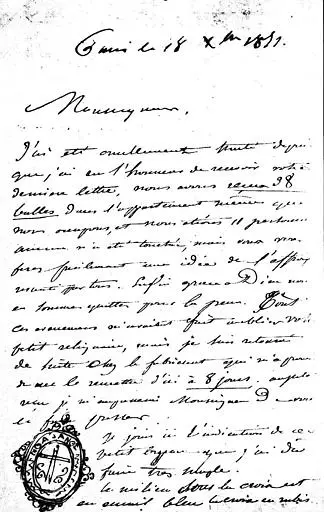 Paris le 18 Xbre 1851.
Monseigneur,
J'ai été cruellement
que j'ai eu l'honneur de recevoir votre
dernière lettre, nous avons reçu 98
balles dans l'appartement même que
nous occupons, et nous étions 11 personnes
aucune n'a été touchée, mais vous vous
ferez facilement une idée de l'affreux
Enfin grâce à Dieu nous
en sommes quittes pour la peur. Tous
ces événements m'avaient fait oublier votre
petit reliquaire, mais je suis retourné
de suite chez le fabricant qui m'a promis
de me le remettre d'ici à 8 jours,
je m'empresserai Monseigneur De vous
le passer.
Je joins ici l'indication de ce
petit que j'ai dû
faire très simple.
le milieu sous la croix est
en émail bleu la croix en rubis